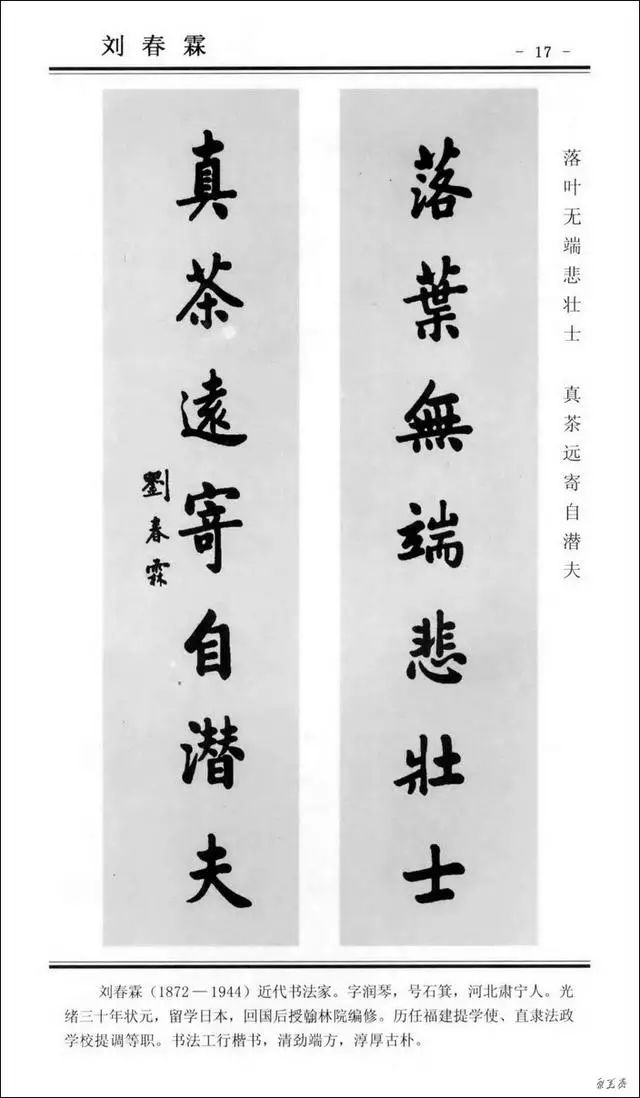 刘春霖
- 17 -
落葉無端悲壯士
真茶遠寄自潜夫
劉春霖
落叶无端悲壮士 真茶远寄自潜夫
刘春霖（1872—1944）近代书法家。字润琴，号石箕，河北肃宁人。光
绪三十年状元，留学日本，回国后授翰林院编修。历任福建提学使、直隶法政
学校提调等职。书法工行楷书，清劲端方，淳厚古朴。